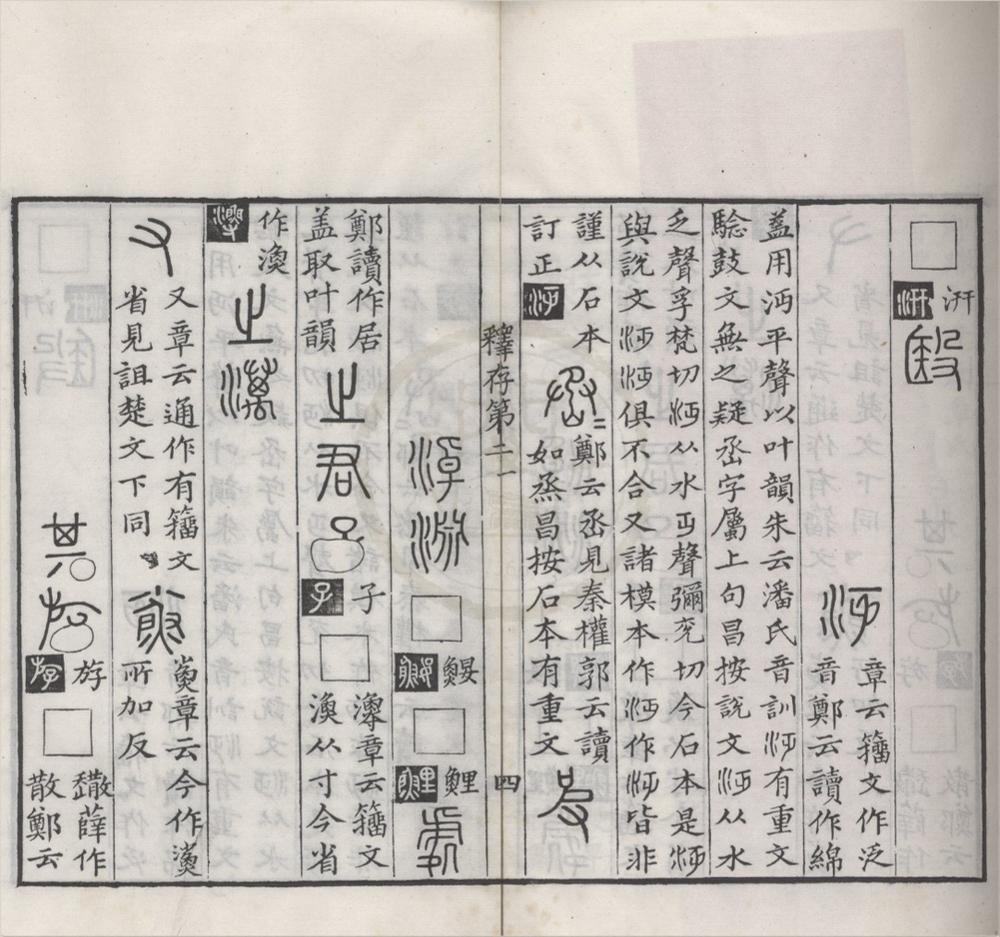 □汧汧殹
沔章云籒文作泛
音鄭云讀作綿
蓋用沔平聲以叶韻朱云潘氏音訓沔有重文
騐鼓文無之疑丞字屬上句昌按說文
乏聲孚梵切 从水丏聲彌兖切今石本是
與說文 俱不合又諸模本作 作 皆非
謹从石本
訂正
鄭云丞見秦權郭云讀
如烝昌按石本有重文
彼
釋存第二 四
淖淵□鰋鰋□鯉鯉處
鄭讀作居
盖取叶韻
之君子子□
章云籒文
漁从寸今省
作漁
之澫
又
又章云通作有籒文
省見詛楚文下同
章云今作
所加反
其斿斿□
薛作
散鄭云